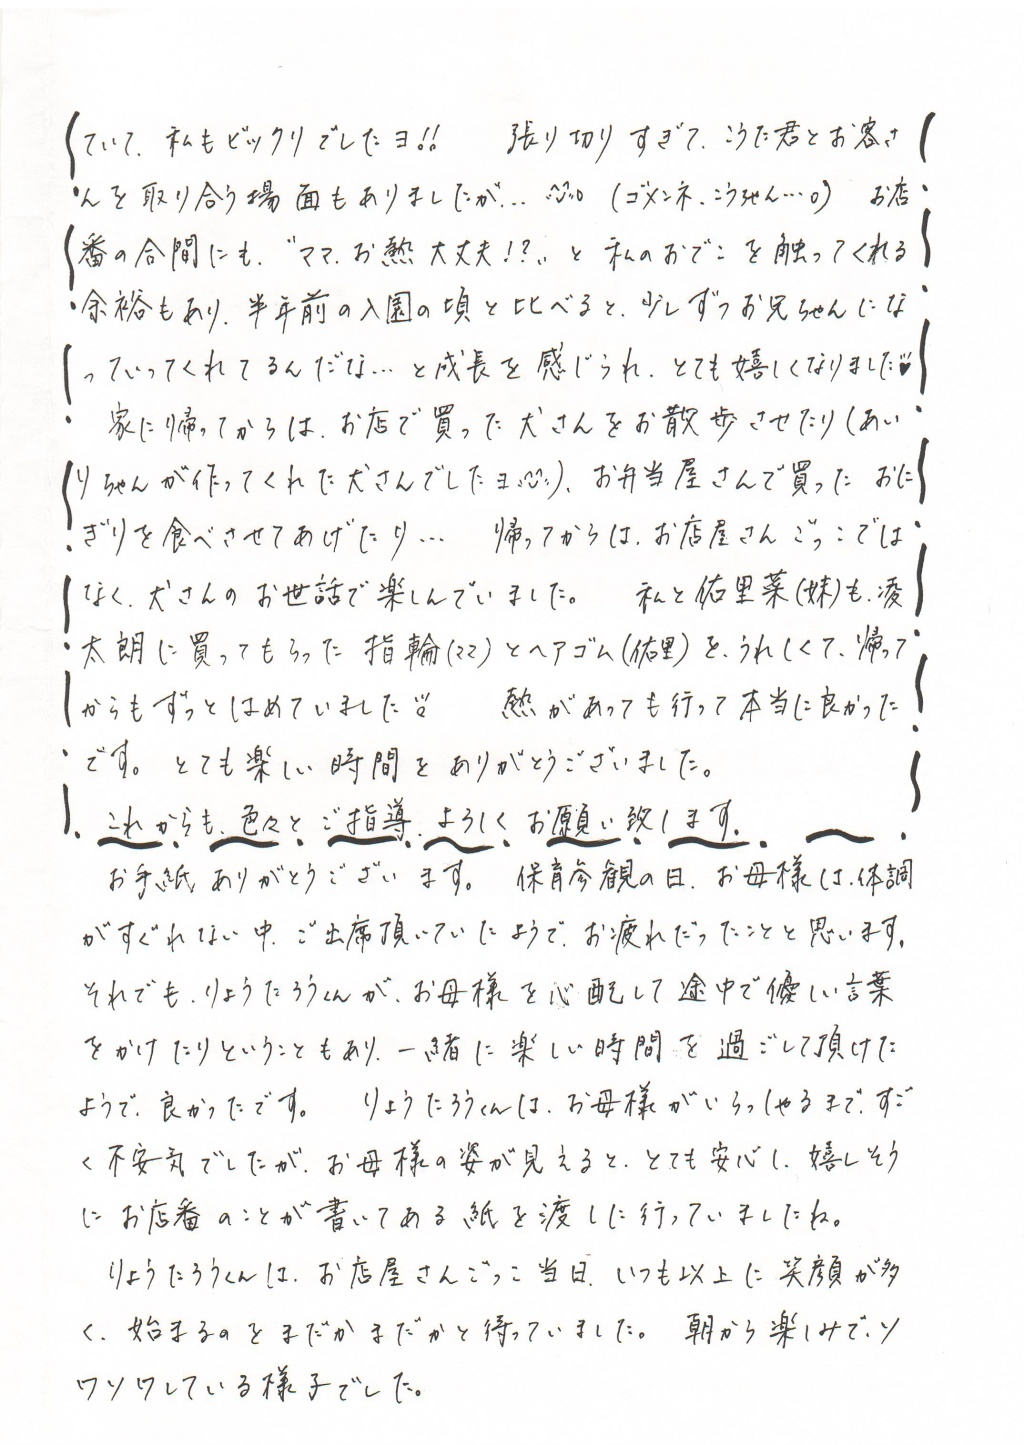 ていて、私もビックリでしたヨ!! 張り切りすぎて、こうた君とお客さ
んを取り合う場面もありましたが… (ゴメンネ、こうちゃん…。) お店
番の合間にも、“ママ、お熱大丈夫!?„と私のおでこを触ってくれる
余裕もあり、半年前の入園の頃と比べると、少しずつお兄ちゃんにな
っていってくれてるんだな…と成長を感じられ、とても嬉しくなりました♥
家に帰ってからは、お店で買った犬さんをお散歩させたり(あい
りちゃんが作ってくれた犬さんでしたヨ)、お弁当屋さんで買ったおに
ぎりを食べさせてあげたり… 帰ってからは、お店屋さんごっこでは
なく、犬さんのお世話で楽しんでいました。 私と佑里菜(妹)も、凌
太朗に買ってもらった指輪(ママ)とヘアゴム(佑里)を、うれしくて、帰って
からもずっとはめていました 熱があっても行って本当に良かった
です。とても楽しい時間をありがとうございました。
これからも、色々とご指導、よろしくお願い致します。
お手紙ありがとうございます。 保育参観の日、お母様は、体調
がすぐれない中、ご出席頂いていたようで、お疲れだったことと思います。
それでも、りょうたろうくんが、お母様を心配して途中で優しい言葉
をかけたりということもあり、一緒に楽しい時間を過ごして頂けた
ようで、良かったです。 りょうたろうくんは、お母様がいらっしゃるまで、すご
く不安気でしたが、お母様の姿が見えると、とても安心し、嬉しそう
にお店番のことが書いてある紙を渡しに行っていましたね。
りょうたろうくんは、お店屋さんごっこ当日、いつも以上に笑顔が多
く、始まるのをまだかまだかと待っていました。 朝から楽しみで、ソ
ワソワしている様子でした。